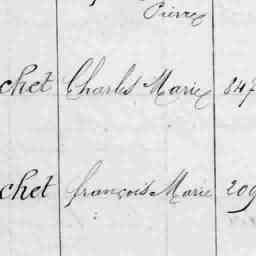 Pierre
chet Charles Marie 847
chet françois Marie 209